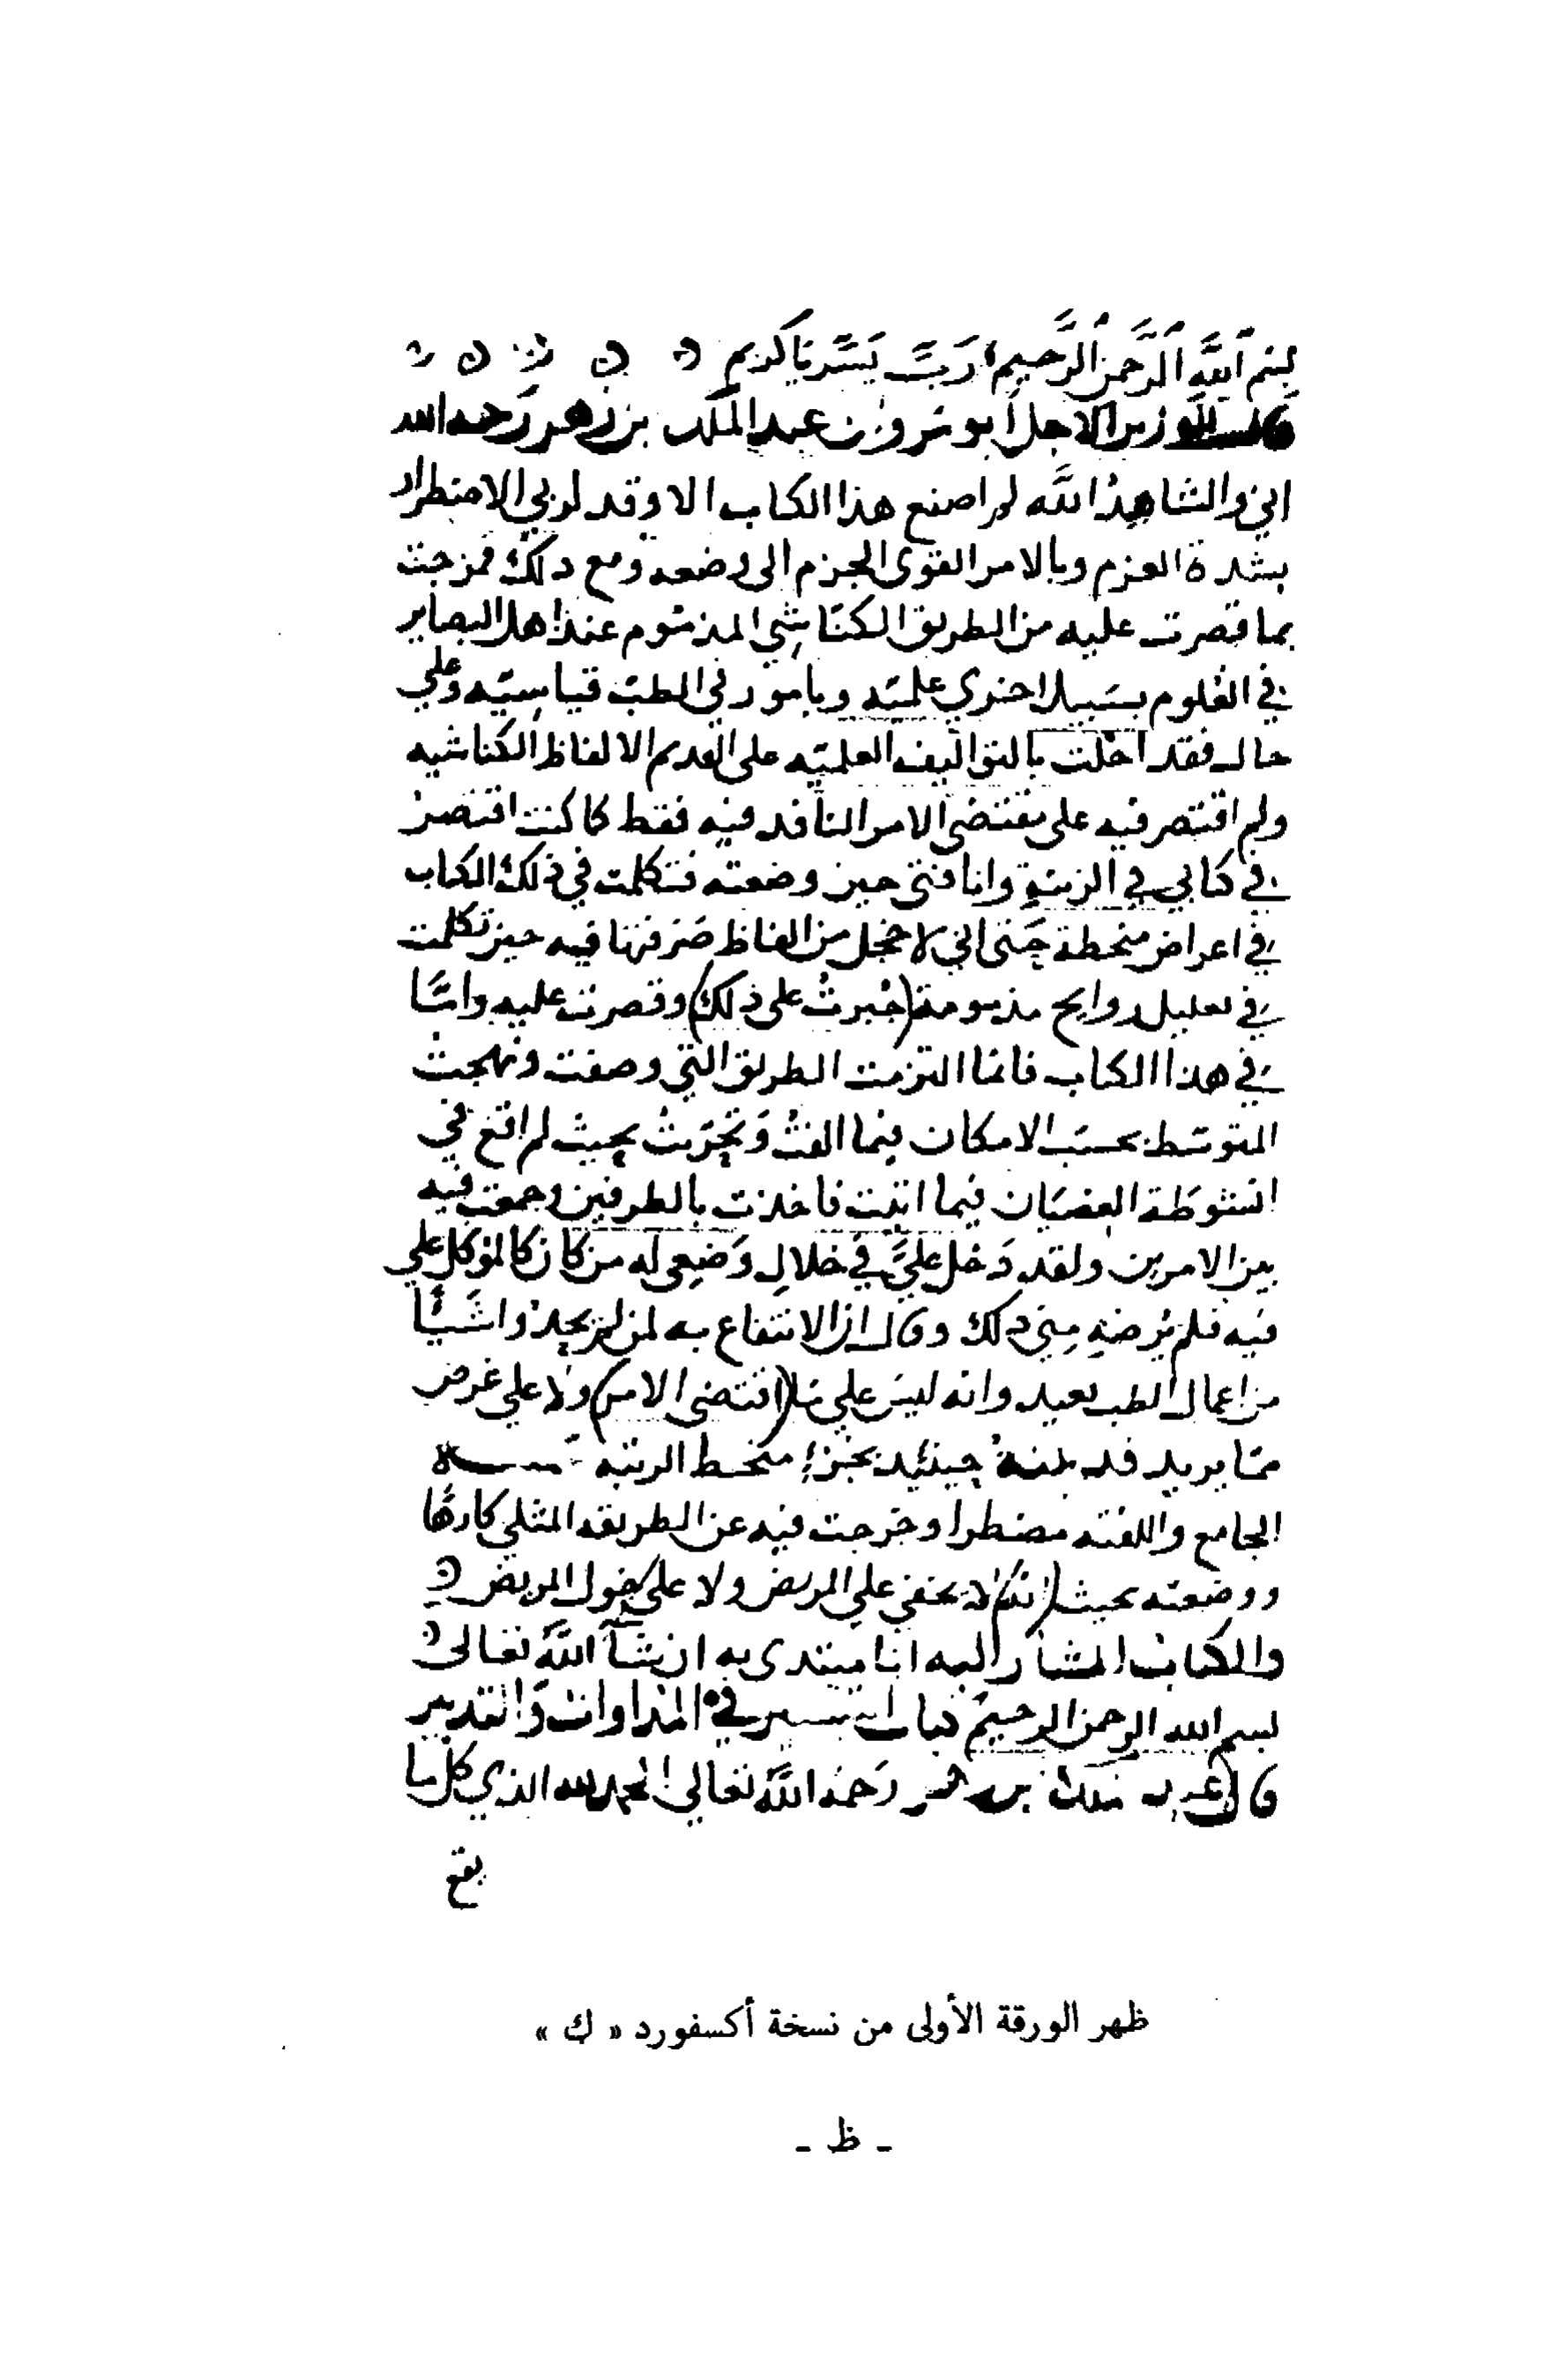 بسم الله الرحمن الرحيم رب يسر يا كريم
قال الوزير الاجل أبو مروان عبد الملك بن زهر رحمه الله
اني والشاهد الله لم اصنع هذا الكتاب الا وقد لز بي الاضطرار
بشدة العزم وبالامر القوى الجزم الى وضعه ومع ذلك فمزجت
بما قصرت عليه من الطريق الكناشي المذموم عند اهل البصاير
في العلوم بسبيل اخرى علميه وبامور في الطب قياسيه وعلى
حال فقد اخللت بالتواليف العلميه على القديم الالفاظ الكناشيه
ولم اقتصر فيه على مقتضى الامر النافد فيه فقط كما كنت اقتصر
في كتابي في الزينة وانا فتى حين وضعته فتكلمت في ذلك الكتاب
في اعراض منحطة حتى اني لاخجل من الفاظ صرفتها فيه حين تكلمت
في تعليل روايح مذمومة (جبرت على ذلك) وقصرت عليه وامّا
في هذا الكتاب فانما التزمت الطريق التي وصفت ونهجت
المتوسط بحسب الامكان فيما الفت وتحريت بحيث لم اقع في
انشوطة العصيان فيما اتيت فاخذت بالطرفين وجمعت فيه
بين الامرين ولقد دخل عليَّ في خلال وضعى له من كان كالموكل علي
فيه فلم يُرضهِ مِنّي ذلك وقال ان الانتفاع به لمن لم يحذوا شيئًا
من اعمال الطب بعيد وانه ليس علي ما (اقتضى الامر) ولا علي غرض
ممّا يريد حينئد بجزءٍ منحط الرتبه
الجامع والفته مضطرا وخرجت فيه عن الطريقه المثلي كارهًا
ووضعته بحيث (انه) لا يخفي علي المريض ولا على حول المريض
والكتاب المشار اليه انا مبتدى به ان شآ اللّه تعالى
بسم الله الرحمن الرحيم كتاب التيسير في المداوات والتدبير
قال عبد ملك بن زهر رحمه اللّه تعالي الحمد لله الذي كل ما
يقع
ظهر الورقة الأولى من نسخة أكسفورد « ك »
- ظ -